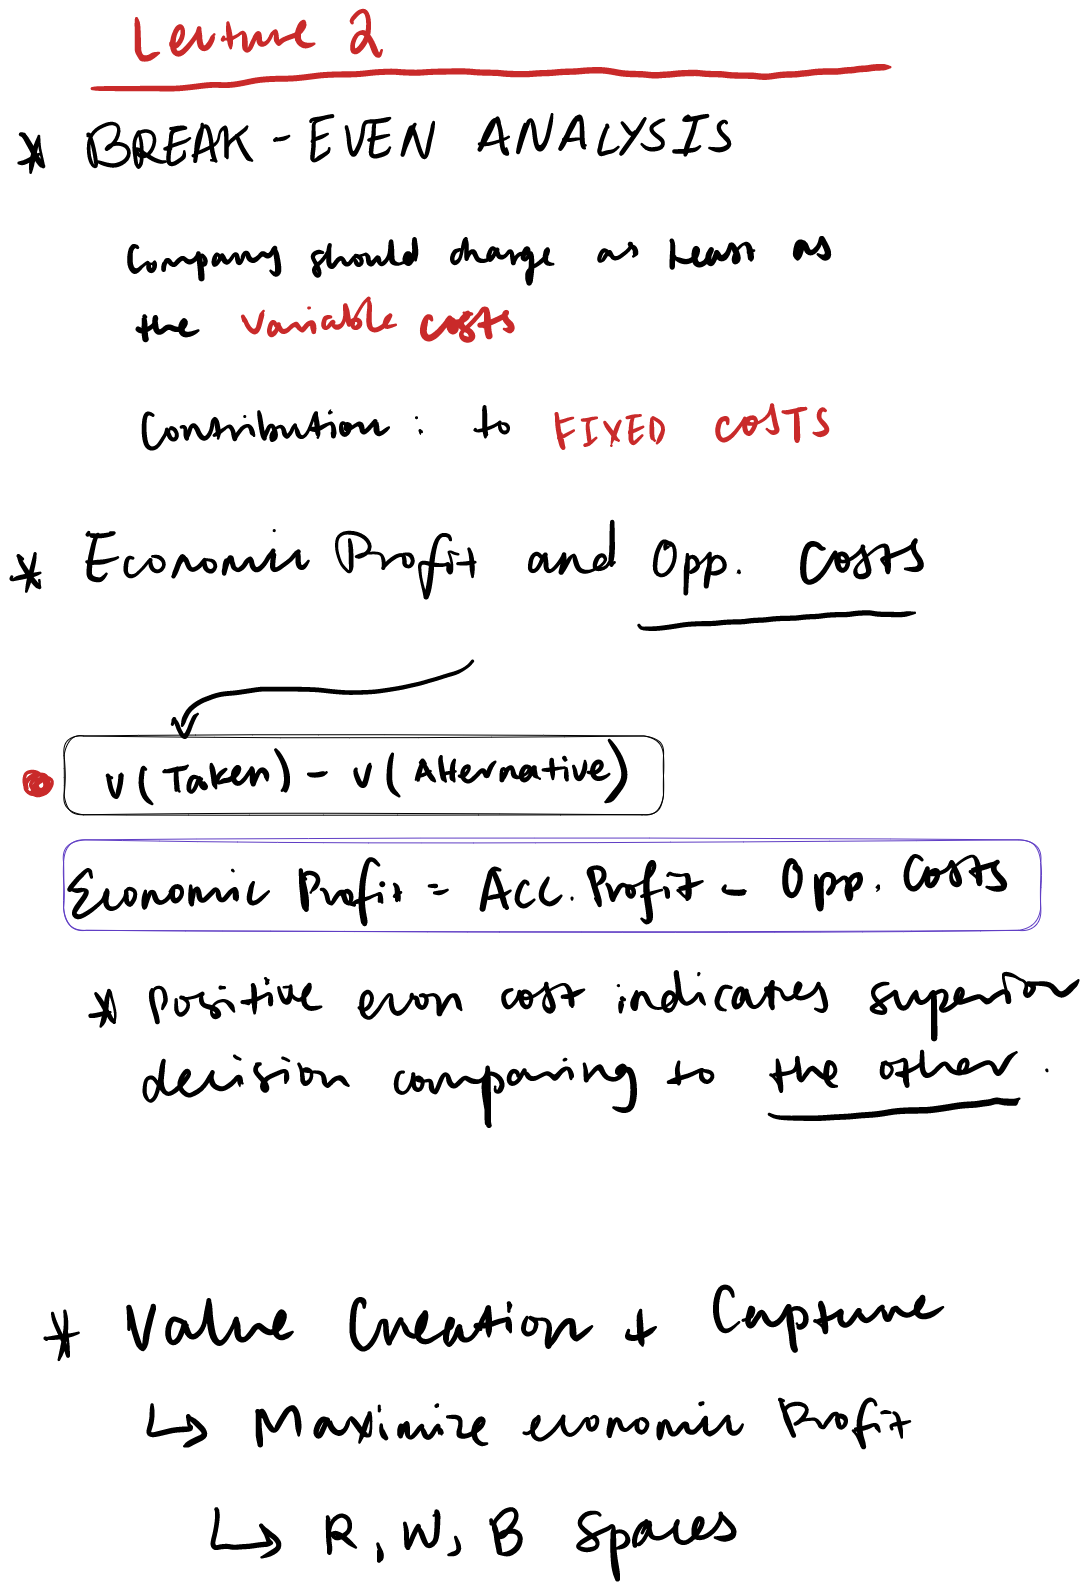 Lecture 2
* BREAK-EVEN ANALYSIS
Company should charge as least as
the variable costs
Contribution: to FIXED COSTS
* Economic Profit and Opp. Costs
v(Taken) - v(Alternative)
Economic Profit = Acc. Profit - Opp. Costs
* Positive econ cost indicates superior
decision comparing to the other.
* Value Creation + Capture
↳ Maximize economic Profit
↳ R, W, B Spaces